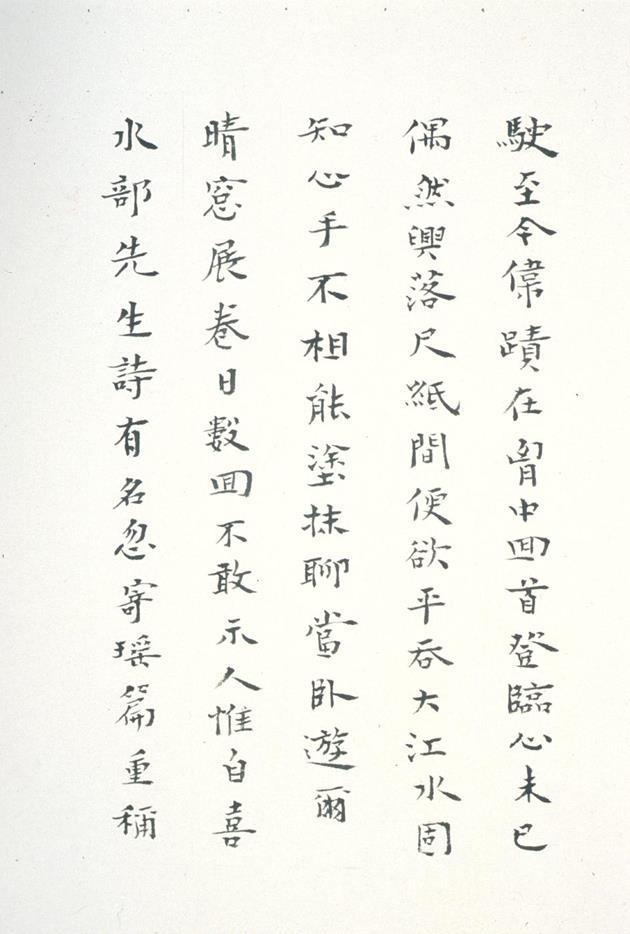 駛至今偉蹟在胷中回首登臨心未已
偶然興落尺紙間便欲平吞大江水固
知心手不相能塗抹聊當臥遊爾
晴窓展卷日數回不敢示人惟自喜
水部先生詩有名忽寄瑶篇重稱